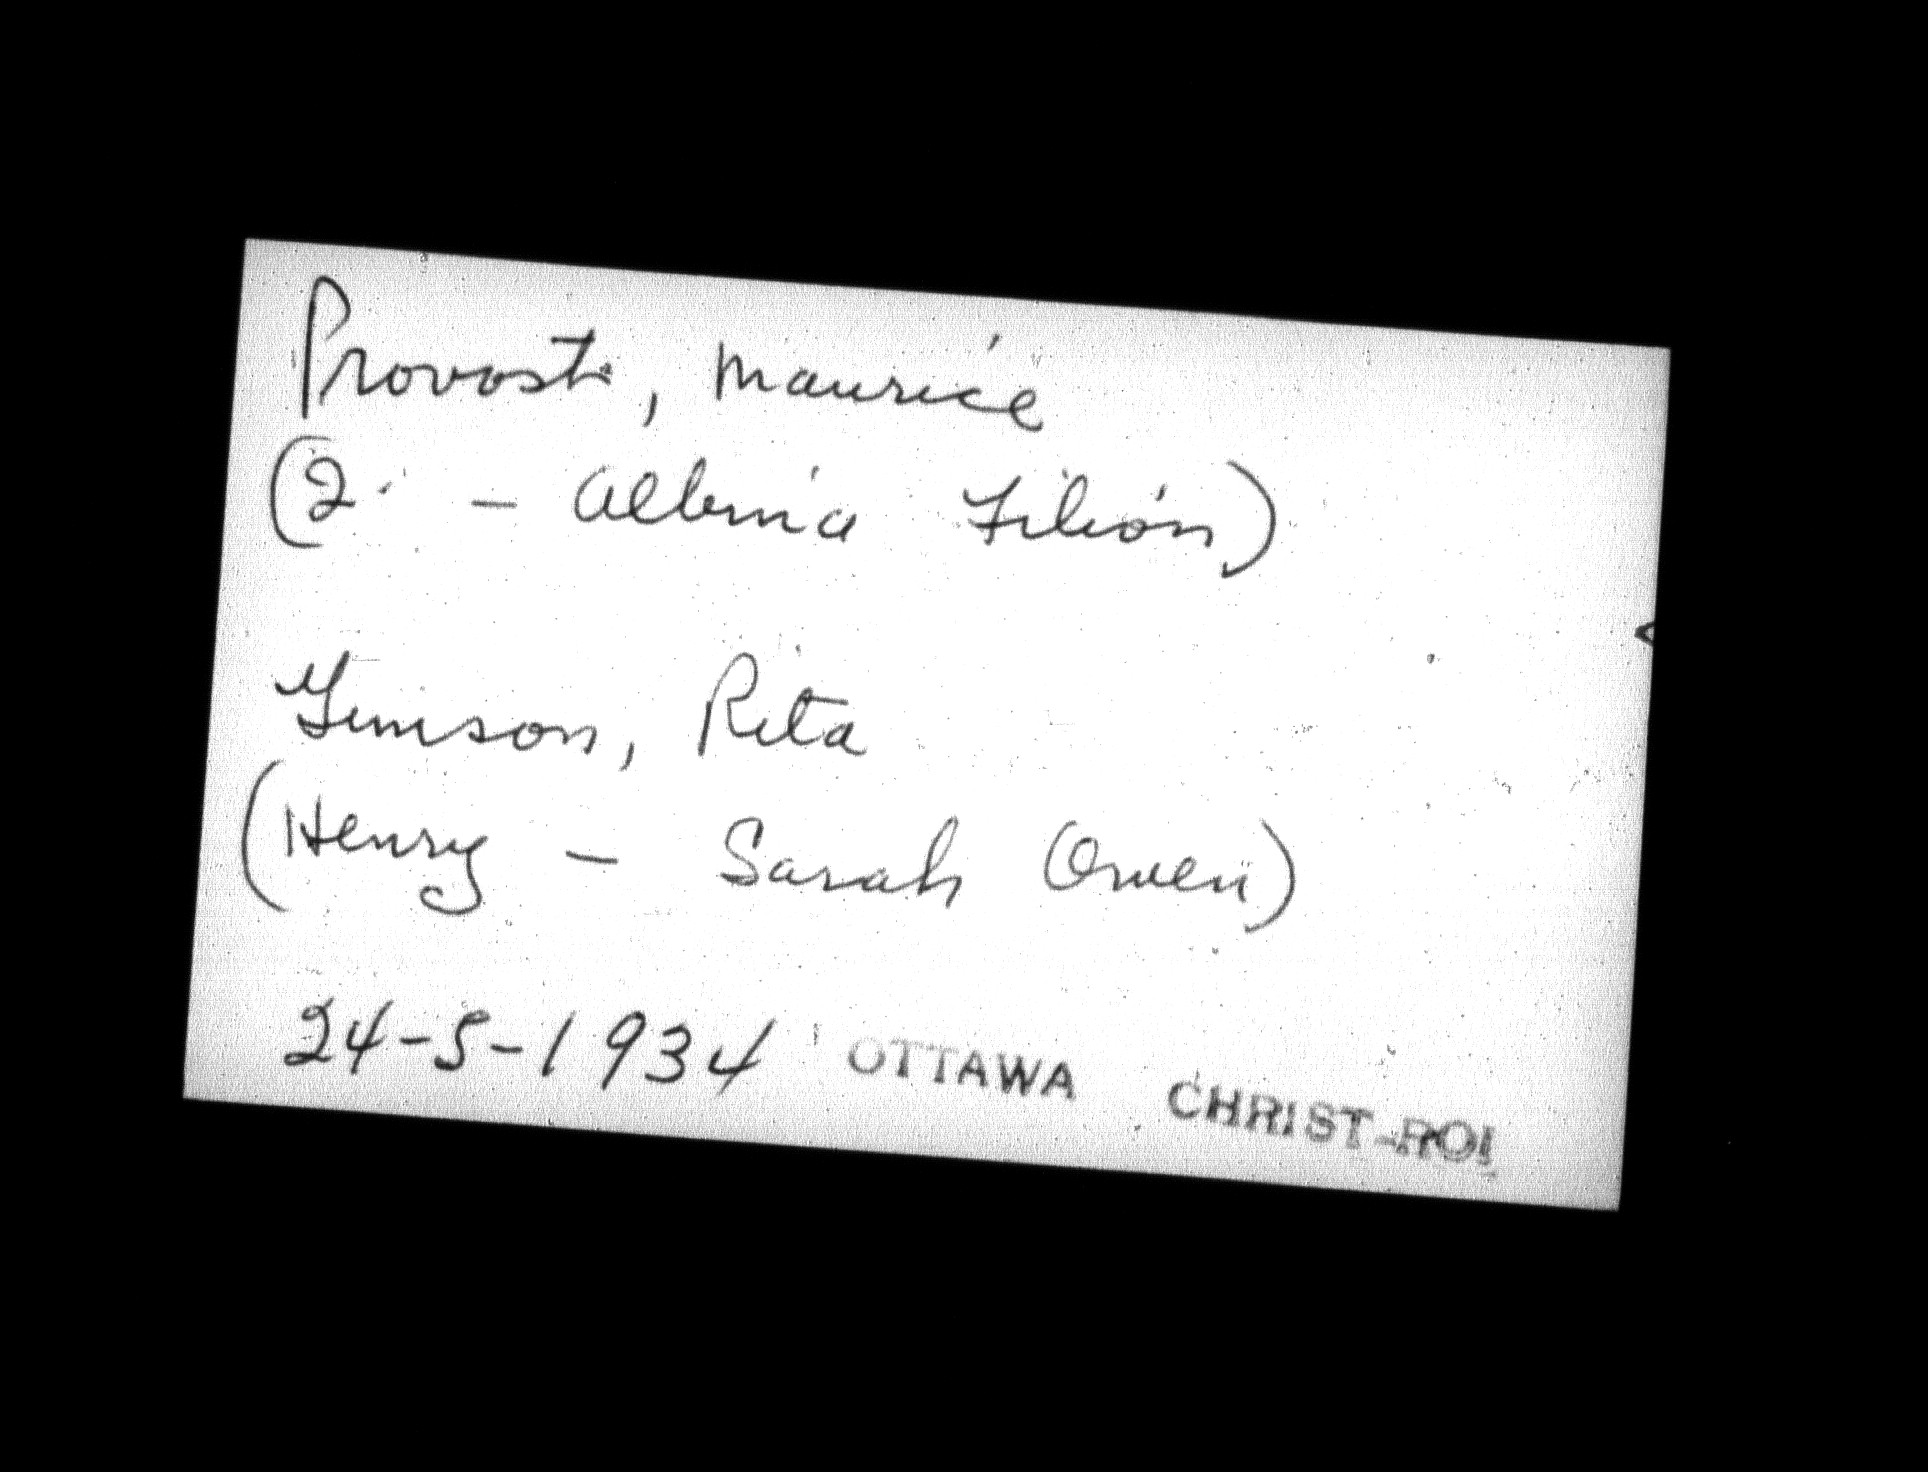 Provost, Maurice
(2. - Albina Filion)
Gimson, Rita
(Henry - Sarah Owen)
24-5-1934 OTTAWA CHRIST-ROI